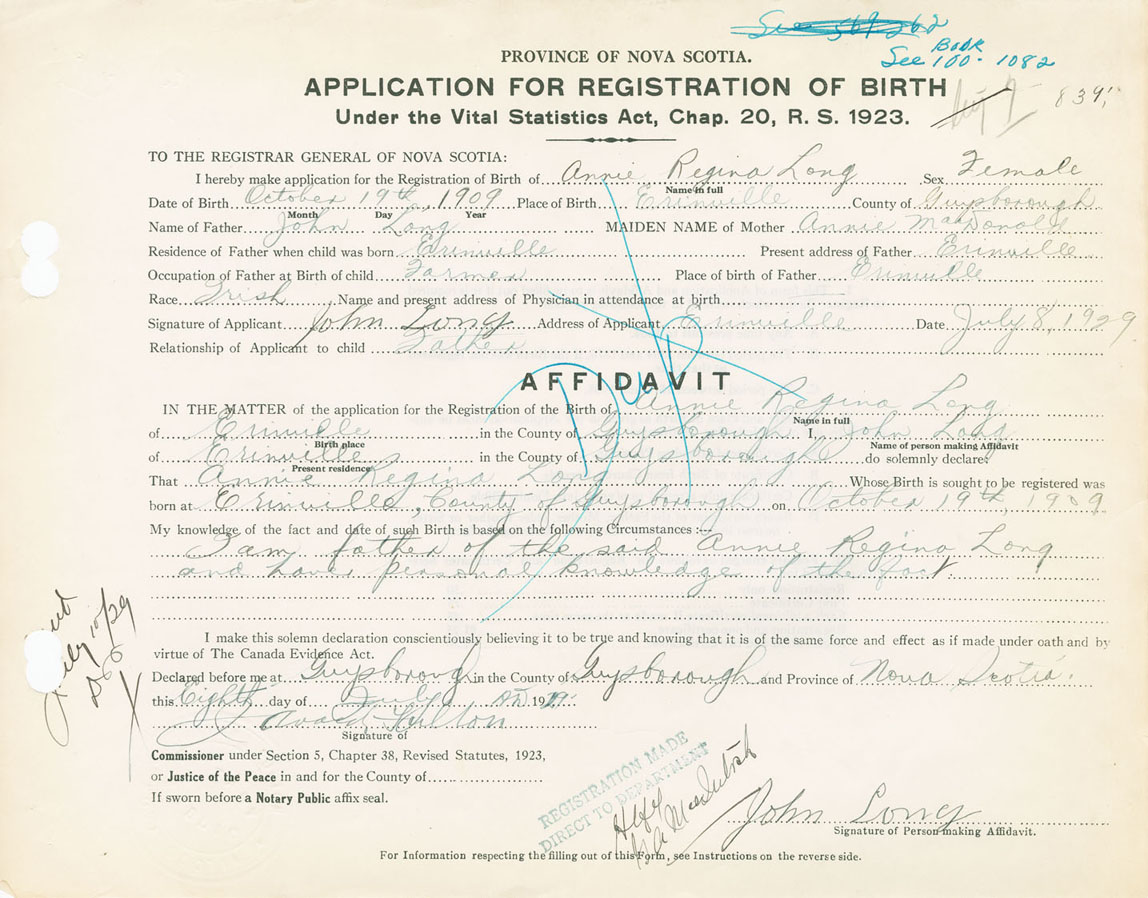 See Book 100 - 1082
PROVINCE OF NOVA SCOTIA.
APPLICATION FOR REGISTRATION OF BIRTH
839
Under the Vital Statistics Act, Chap. 20, R. S. 1923.
TO THE REGISTRAR GENERAL OF NOVA SCOTIA:
I hereby make application for the Registration of Birth of Annie Regina Long Sex Female
Name in full
Date of Birth October 19th, 1909 Place of Birth Erinville County of Guysborough
Month Day Year
Name of Father John Long MAIDEN NAME of Mother Annie MacDonald
Residence of Father when child was born Erinville Present address of Father Erinville
Occupation of Father at Birth of child Farmer Place of birth of Father Erinville
Race Irish Name and present address of Physician in attendance at birth
Signature of Applicant John Long Address of Applicant Erinville Date July 8, 1929
Relationship of Applicant to child Father
AFFIDAVIT
Dup
IN THE MATTER of the application for the Registration of the Birth of Annie Regina Long
Name in full
of Erinville in the County of Guysborough I, John Long
Birth place Name of person making Affidavit
of Erinville in the County of Guysborough do solemnly declare:
Present residence
That Annie Regina Long Whose Birth is sought to be registered was
born at Erinville, County of Guysborough on October 19th, 1909
My knowledge of the fact and date of such Birth is based on the following Circumstances :—
I am father of the said Annie Regina Long
and have personal knowledge of the fact.
July 10/29
I make this solemn declaration conscientiously believing it to be true and knowing that it is of the same force and effect as if made under oath and by
virtue of The Canada Evidence Act.
Declared before me at Guysborough in the County of Guysborough and Province of Nova Scotia.
this Eighth day of July A.D. 1929.
Signature of
Commissioner under Section 5, Chapter 38, Revised Statutes, 1923,
or Justice of the Peace in and for the County of
If sworn before a Notary Public affix seal.
REGISTRATION MADE
DIRECT TO DEPARTMENT
John Long
Signature of Person making Affidavit.
For Information respecting the filling out of this Form, see Instructions on the reverse side.